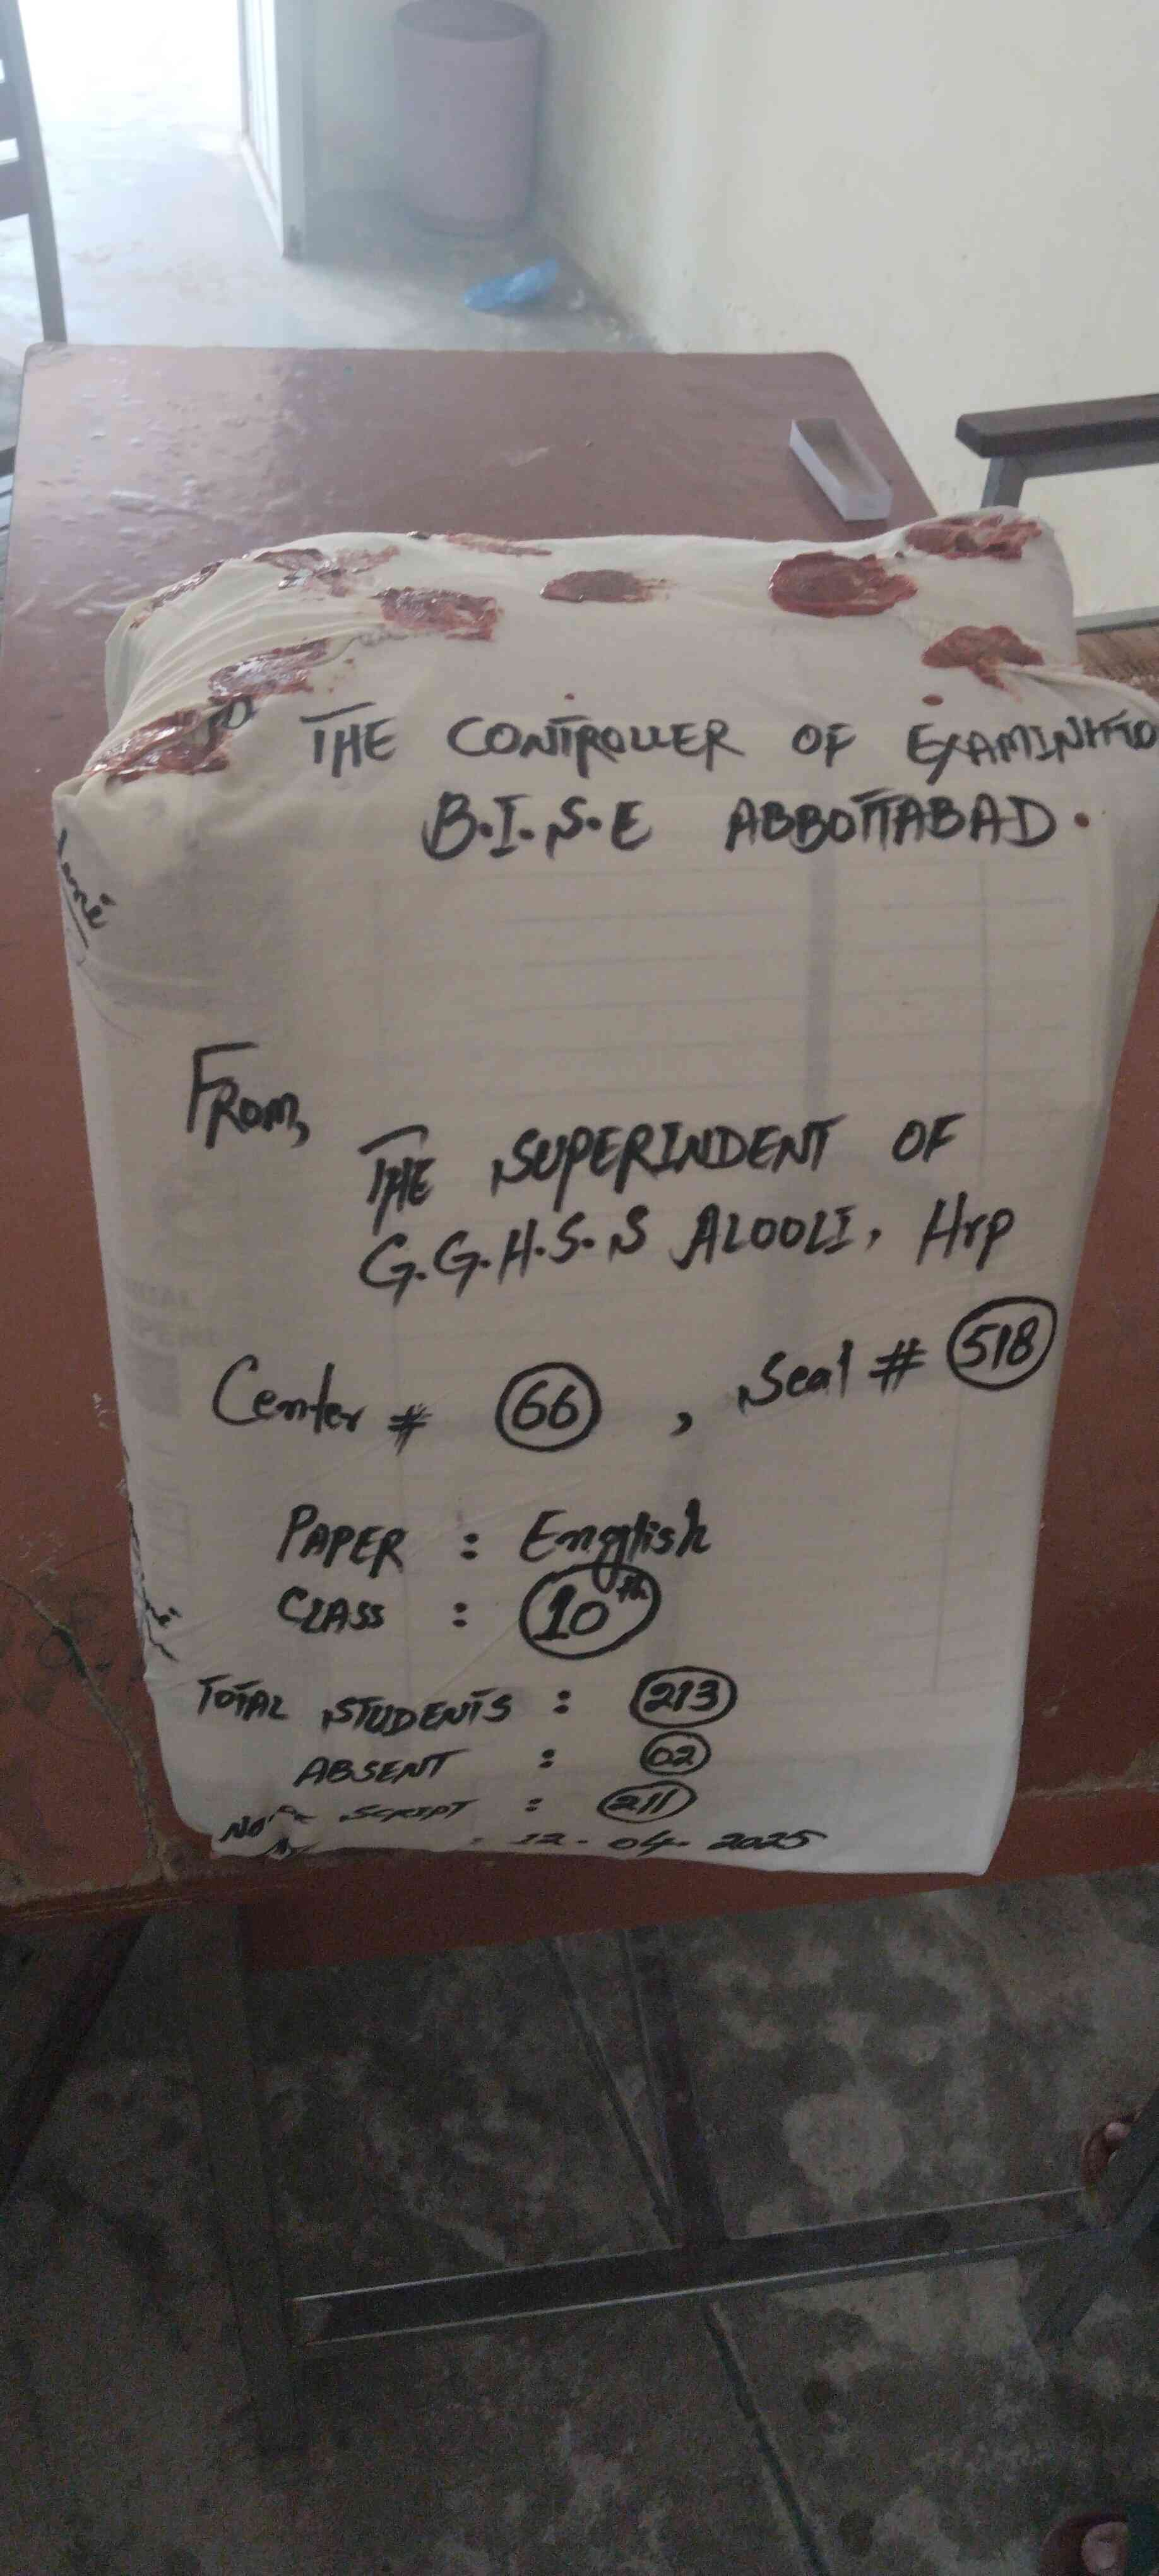 TO THE CONTROLLER OF EXAMINATIO
B.I.S.E ABBOTTABAD.
From,
THE SUPERINDENT OF
G.G.H.S.S ALOOLI, Hrp
Center # 66 , Seal # 518
PAPER : English
CLASS : 10th
TOTAL STUDENTS : 213
ABSENT : 02
NO OF SCRIPT : 211
: 12-04-2025